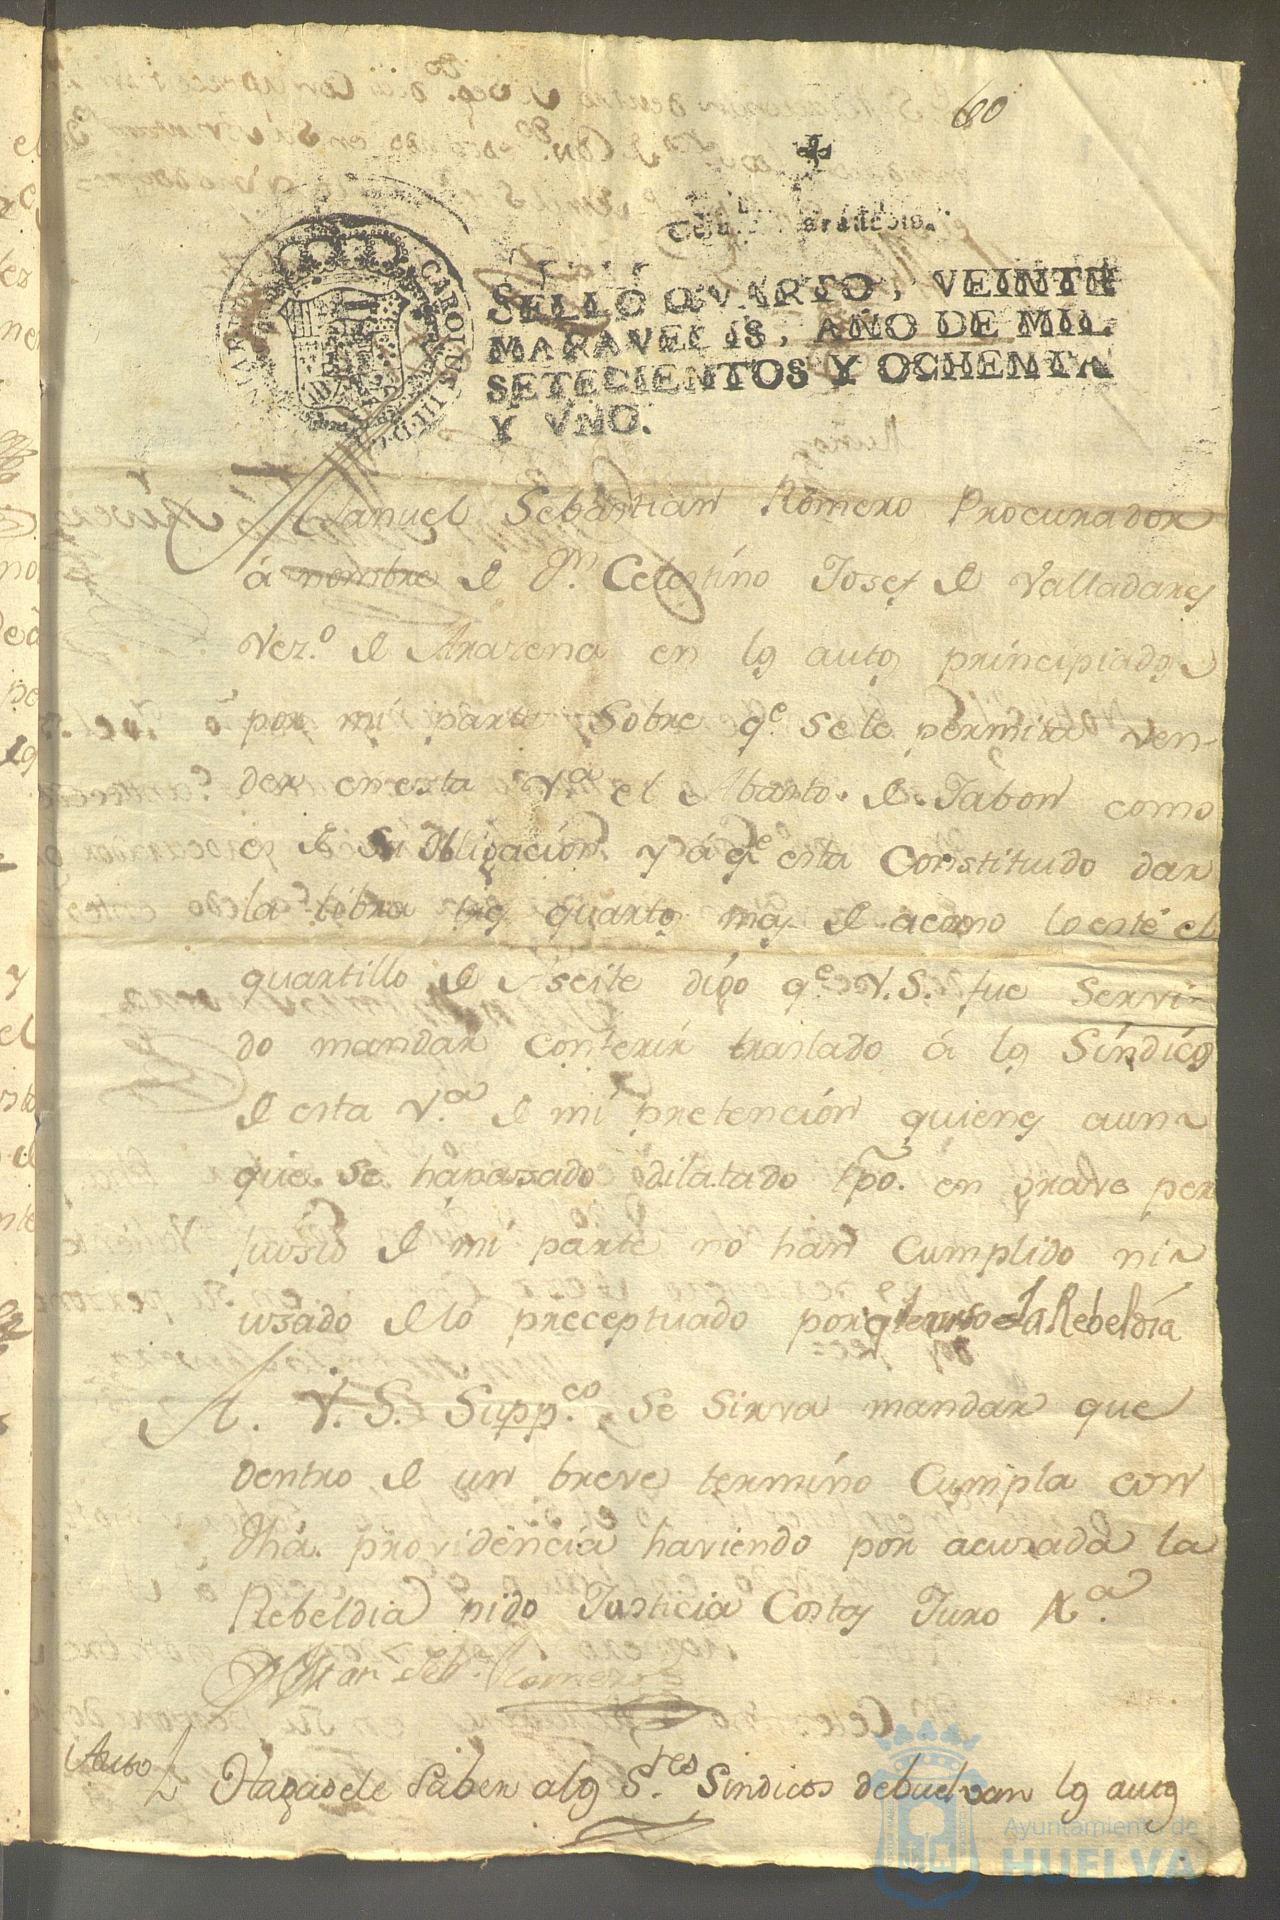 60
SELLO QVARTO, VEINTE
MARAVEDIS, AÑO DE MIL
SETECIENTOS Y OCHENTA
Y VNO.
CAROLUS III D.G.
Manuel Sebastian Romero Procurador
á nombre de Dn. Celestino Josef de Valladares
Vez.o de Arazena en los autos principiados
por mi parte sobre q.e se le permita ven-
der en esta V.a el Abasto de Jabon como
es de su obligacion y á q.e esta Constituido dar
la libra tres quartos mas de acomo lo esté el
quartillo de Aseite digo q.e V.S. fue servi-
do mandar conferir traslado á los Síndicos
de esta V.a de mi pretención quienes aun-
que se ha pasado dilatado tpo. en grave per
juisio de mi parte no han Cumplido ni
usado de lo preceptuado por la Rebeldía
A. V. S. Supp.co se sirva mandar que
dentro de un breve termino Cumpla con
dha. providencia haviendo por acusada la
Rebeldia pido Justicia Costas Juro &.a
Man Seb. Romero
Auto Hagasele saber a los S.res Sindicos debuelvan los autos
Ayuntamiento de
HUELVA